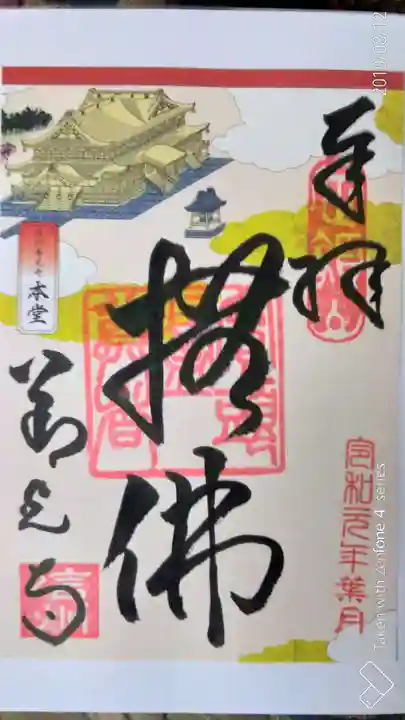 奉拝
撫佛
善光寺
令和元年葉月
本堂
2019.08.12
Taken with Zenfone 4 series